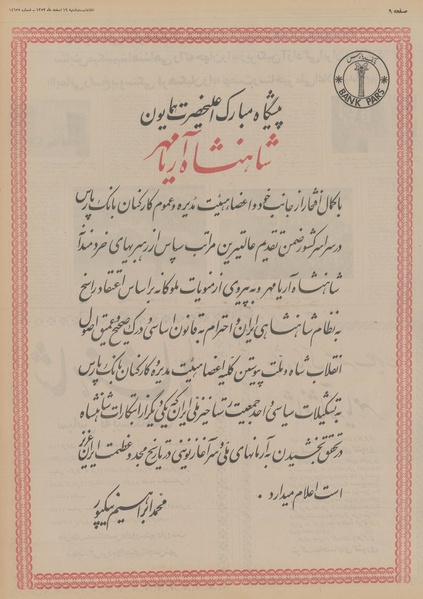 صفحه ۹
BANK PARS
پیشگاه مبارک اعلیحضرت همایون
شاهنشاه آریامهر
با کمال افتخار از جانب خود و اعضاء هیئت مدیره و عموم کارکنان بانک پارس
در سراسر کشور ضمن تقدیم عالیترین مراتب سپاس از رهبریهای خردمندانه
شاهنشاه آریامهر و به پیروی از منویات ملوکانه بر اساس اعتقاد راسخ
به نظام شاهنشاهی ایران و احترام به قانون اساسی و درک صحیح و عمیق اصول
انقلاب شاه و ملت پیوستن کلیه اعضاء هیئت مدیره و کارکنان بانک پارس
به تشکیلات سیاسی واحد جمعیت رستاخیز ملی ایران که یکی دیگر از ابتکارات شاهنشاه
در تحقق بخشیدن به آرمانهای ملی و سرآغاز نوینی در تاریخ مجد و عظمت ایران عزیز
است اعلام میدارد .
محمد ابراهیم نیکپور